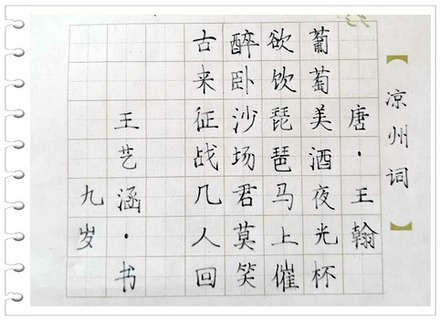 【凉州词】
唐·王翰
葡萄美酒夜光杯
欲饮琵琶马上催
醉卧沙场君莫笑
古来征战几人回
王艺涵·书
九岁